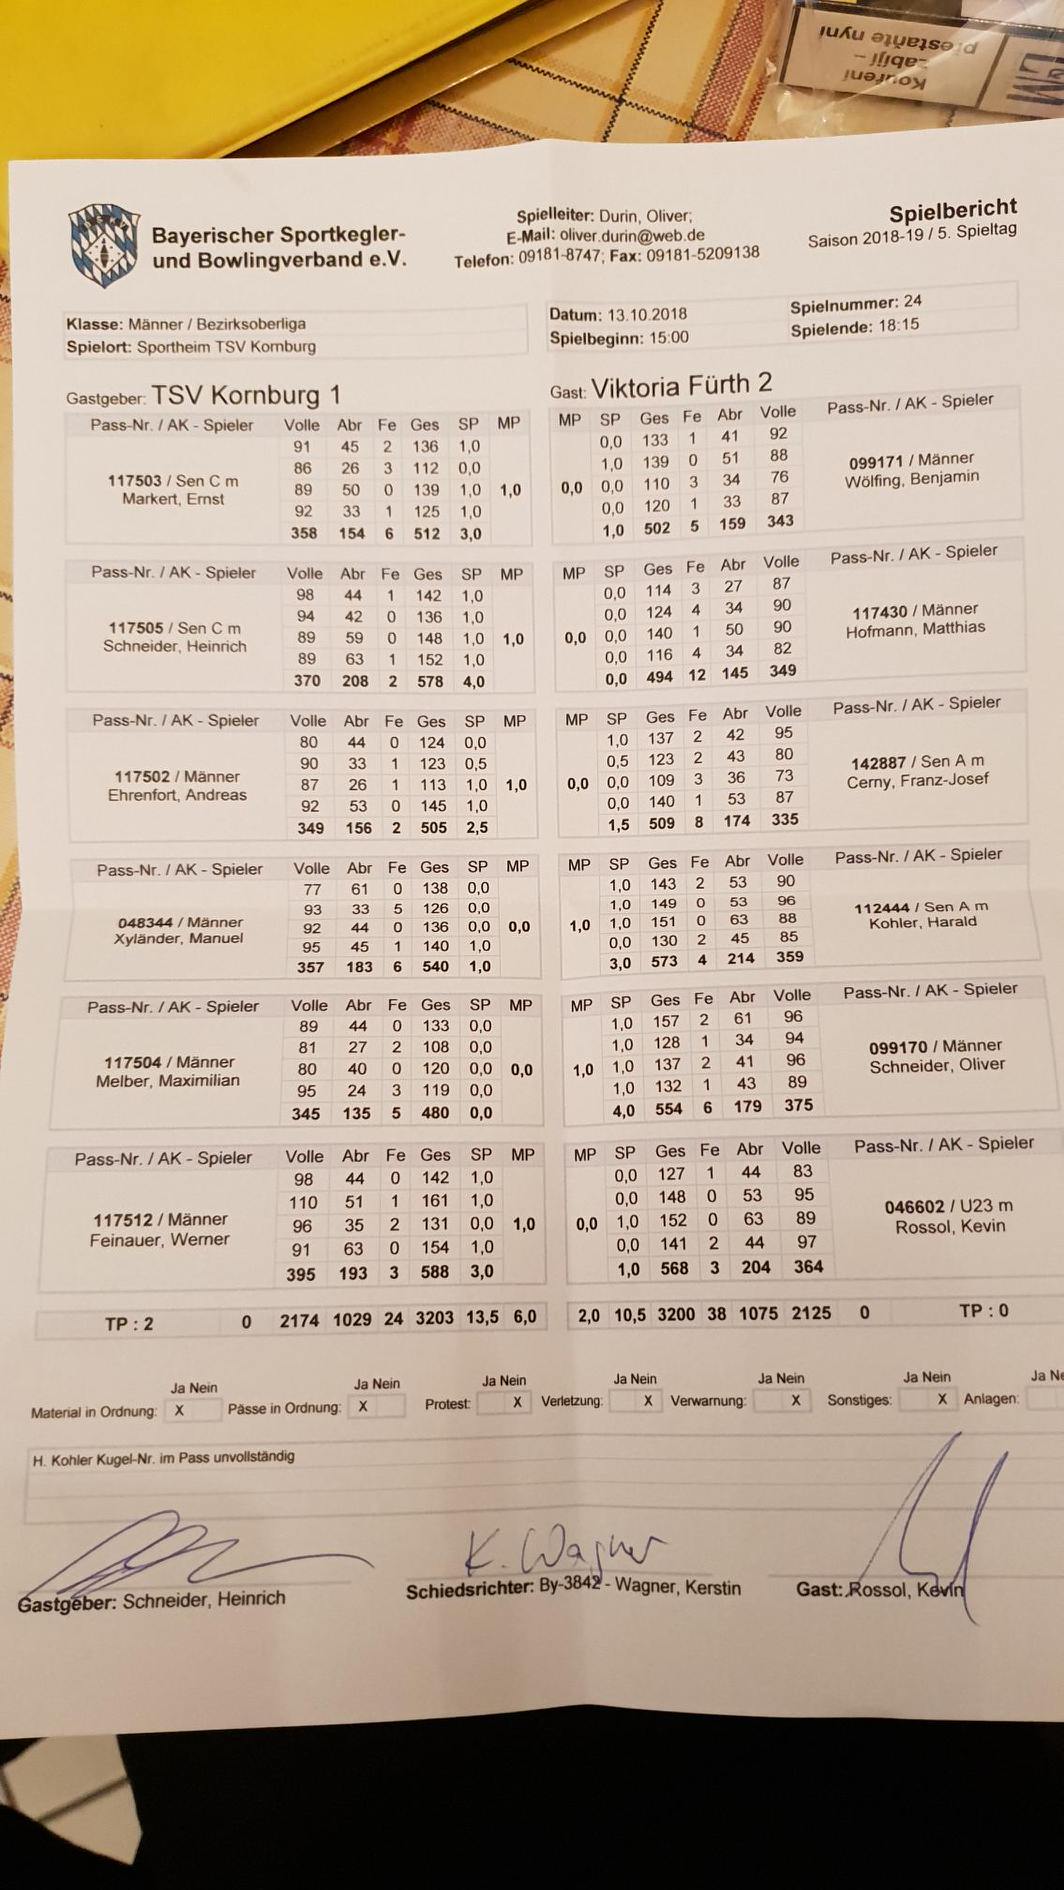 Kouření
zabíjí –
přestaňte nyní
Bayerischer Sportkegler-
und Bowlingverband e.V.
Spielleiter: Durin, Oliver;
E-Mail: oliver.durin@web.de
Telefon: 09181-8747; Fax: 09181-5209138
Spielbericht
Saison 2018-19 / 5. Spieltag
Klasse: Männer / Bezirksoberliga
Spielort: Sportheim TSV Kornburg
Datum: 13.10.2018
Spielbeginn: 15:00
Spielnummer: 24
Spielende: 18:15
Gastgeber: TSV Kornburg 1
Gast: Viktoria Fürth 2
Pass-Nr. / AK - Spieler Volle Abr Fe Ges SP MP MP SP Ges Fe Abr Volle Pass-Nr. / AK - Spieler
91 45 2 136 1,0 0,0 133 1 41 92
86 26 3 112 0,0 1,0 139 0 51 88
117503 / Sen C m 89 50 0 139 1,0 1,0 0,0 0,0 110 3 34 76 099171 / Männer
Markert, Ernst 92 33 1 125 1,0 0,0 120 1 33 87 Wölfing, Benjamin
358 154 6 512 3,0 1,0 502 5 159 343
Pass-Nr. / AK - Spieler Volle Abr Fe Ges SP MP MP SP Ges Fe Abr Volle Pass-Nr. / AK - Spieler
98 44 1 142 1,0 0,0 114 3 27 87
94 42 0 136 1,0 0,0 124 4 34 90
117505 / Sen C m 89 59 0 148 1,0 1,0 0,0 0,0 140 1 50 90 117430 / Männer
Schneider, Heinrich 89 63 1 152 1,0 0,0 116 4 34 82 Hofmann, Matthias
370 208 2 578 4,0 0,0 494 12 145 349
Pass-Nr. / AK - Spieler Volle Abr Fe Ges SP MP MP SP Ges Fe Abr Volle Pass-Nr. / AK - Spieler
80 44 0 124 0,0 1,0 137 2 42 95
90 33 1 123 0,5 0,5 123 2 43 80
117502 / Männer 87 26 1 113 1,0 1,0 0,0 0,0 109 3 36 73 142887 / Sen A m
Ehrenfort, Andreas 92 53 0 145 1,0 0,0 140 1 53 87 Cerny, Franz-Josef
349 156 2 505 2,5 1,5 509 8 174 335
Pass-Nr. / AK - Spieler Volle Abr Fe Ges SP MP MP SP Ges Fe Abr Volle Pass-Nr. / AK - Spieler
77 61 0 138 0,0 1,0 143 2 53 90
93 33 5 126 0,0 1,0 149 0 53 96
048344 / Männer 92 44 0 136 0,0 0,0 1,0 1,0 151 0 63 88 112444 / Sen A m
Xyländer, Manuel 95 45 1 140 1,0 0,0 130 2 45 85 Kohler, Harald
357 183 6 540 1,0 3,0 573 4 214 359
Pass-Nr. / AK - Spieler Volle Abr Fe Ges SP MP MP SP Ges Fe Abr Volle Pass-Nr. / AK - Spieler
89 44 0 133 0,0 1,0 157 2 61 96
81 27 2 108 0,0 1,0 128 1 34 94
117504 / Männer 80 40 0 120 0,0 0,0 1,0 1,0 137 2 41 96 099170 / Männer
Melber, Maximilian 95 24 3 119 0,0 1,0 132 1 43 89 Schneider, Oliver
345 135 5 480 0,0 4,0 554 6 179 375
Pass-Nr. / AK - Spieler Volle Abr Fe Ges SP MP MP SP Ges Fe Abr Volle Pass-Nr. / AK - Spieler
98 44 0 142 1,0 0,0 127 1 44 83
110 51 1 161 1,0 0,0 148 0 53 95
117512 / Männer 96 35 2 131 0,0 1,0 0,0 1,0 152 0 63 89 046602 / U23 m
Feinauer, Werner 91 63 0 154 1,0 0,0 141 2 44 97 Rossol, Kevin
395 193 3 588 3,0 1,0 568 3 204 364
TP : 2 0 2174 1029 24 3203 13,5 6,0 2,0 10,5 3200 38 1075 2125 0 TP : 0
Ja Nein Ja Nein Ja Nein Ja Nein Ja Nein Ja Nein Ja Ne
Material in Ordnung: X Pässe in Ordnung: X Protest: X Verletzung: X Verwarnung: X Sonstiges: X Anlagen:
H. Kohler Kugel-Nr. im Pass unvollständig
K. Wagner
Gastgeber: Schneider, Heinrich
Schiedsrichter: By-3842 - Wagner, Kerstin
Gast: Rossol, Kevin